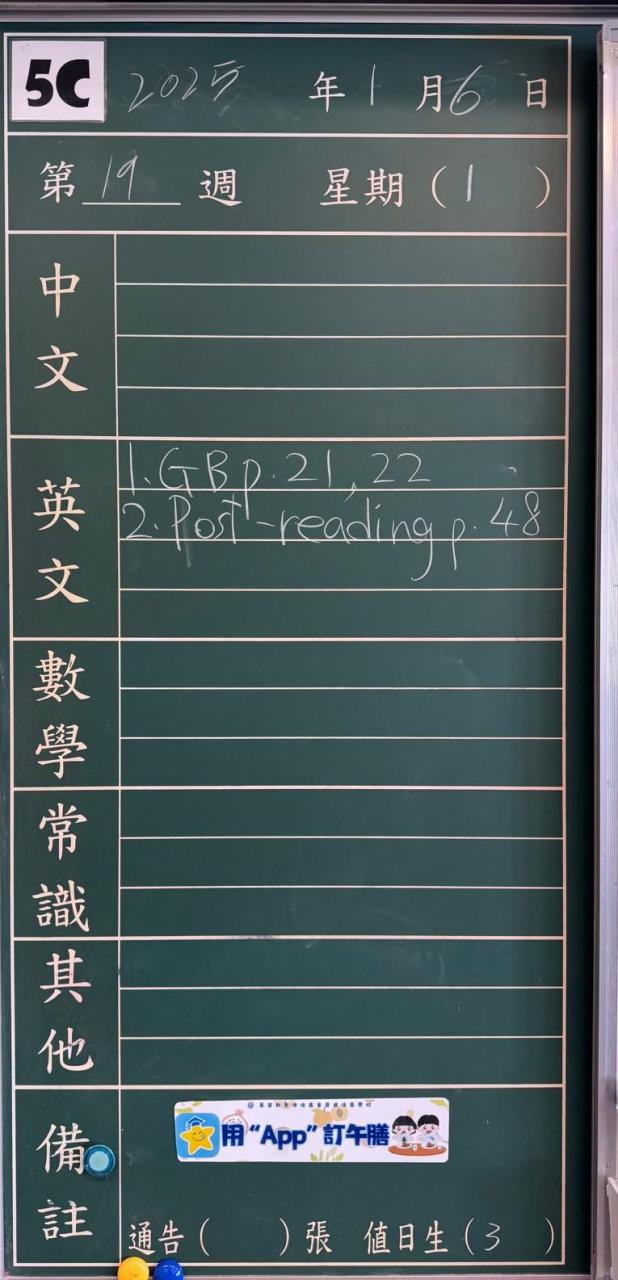 5C 2025 年 1 月 6 日
第 19 週 星期 ( 1 )
中文
英文
1. GB p. 21, 22
2. Post-reading p. 48
數學
常識
其他
備註
用“App”訂午膳
通告 ( ) 張 值日生 ( 3 )